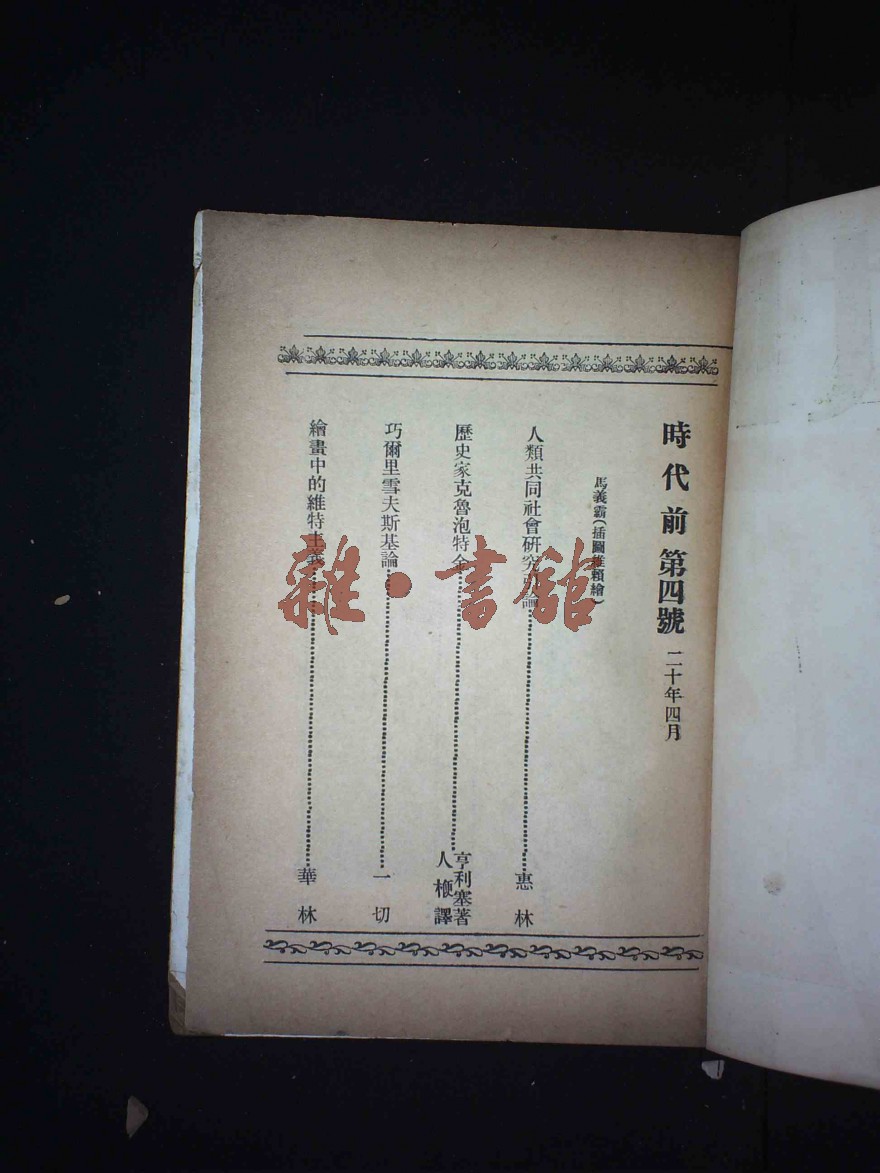 時代前 第四號 二十年四月
馬義霸(插圖維賴繪)
人類共同社會研究 論……惠林
歷史家克魯泡特金……亨利塞著
人楩譯
巧爾里雪夫斯基論……一切
繪畫中的維特主義……華林
雜·書館